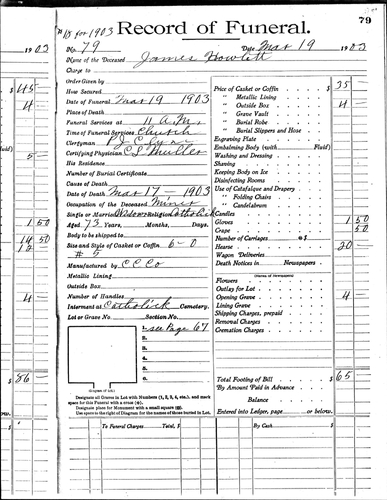 79
# 18 for 1903
Record of Funeral.
1903
No. 79
Date Mar 19 1903
Name of the Deceased James Howlett
Charge to
Order Given by
How Secured
Date of Funeral Mar 19 1903
Place of Death
Funeral Services at 11 A.M.
Time of Funeral Services Church
Clergyman P.J.
Certifying Physician C L Muller
His Residence
Number of Burial Certificate
Cause of Death
Date of Death Mar 17 - 1903
Occupation of the Deceased Miner
Single or Married Widower Religion Catholick
Aged 73 Years, Months, Days.
Body to be shipped to
Size and Style of Casket or Coffin 6-0
# 5
Manufactured by C C Co
Metallic Lining
Outside Box
Number of Handles
Interment at Catholick Cemetery.
Lot or Grave No. Section No.
1. see Page 67
2.
3.
4.
5.
6.
(Diagram of Lot)
Designate all Graves in Lot with Numbers (1, 2, 3, 4, etc.), and mark
space for this Funeral with a cross (+).
Designate place for Monument with a small square
Use space to the right of Diagram for the names of those buried in Lot.
Price of Casket or Coffin $ 35
" Metallic Lining
" Outside Box 4 —
" Grave Vault
" Burial Robe
" Burial Slippers and Hose
Engraving Plate
Embalming Body (with Fluid)
Washing and Dressing
Shaving
Keeping Body on Ice
Disinfecting Rooms
Use of Catafalque and Drapery
" Folding Chairs
" Candelabrum
Candles
Gloves 1 50
Crape 50
Number of Carriages @ $
Hearse 20
Wagon Deliveries
Death Notices in Newspapers
(Names of Newspapers)
Flowers
Outlay for Lot
Opening Grave 4 —
Lining Grave
Shipping Charges, prepaid
Removal Charges
Cremation Charges
Total Footing of Bill $ 65
By Amount Paid in Advance
Balance
Entered into Ledger, page or below.
To Funeral Charges Total, $
By Cash $
$ 45 —
4 —
Fluid)
5 —
1 50
14 50
12 —
4 —
$ 86 —